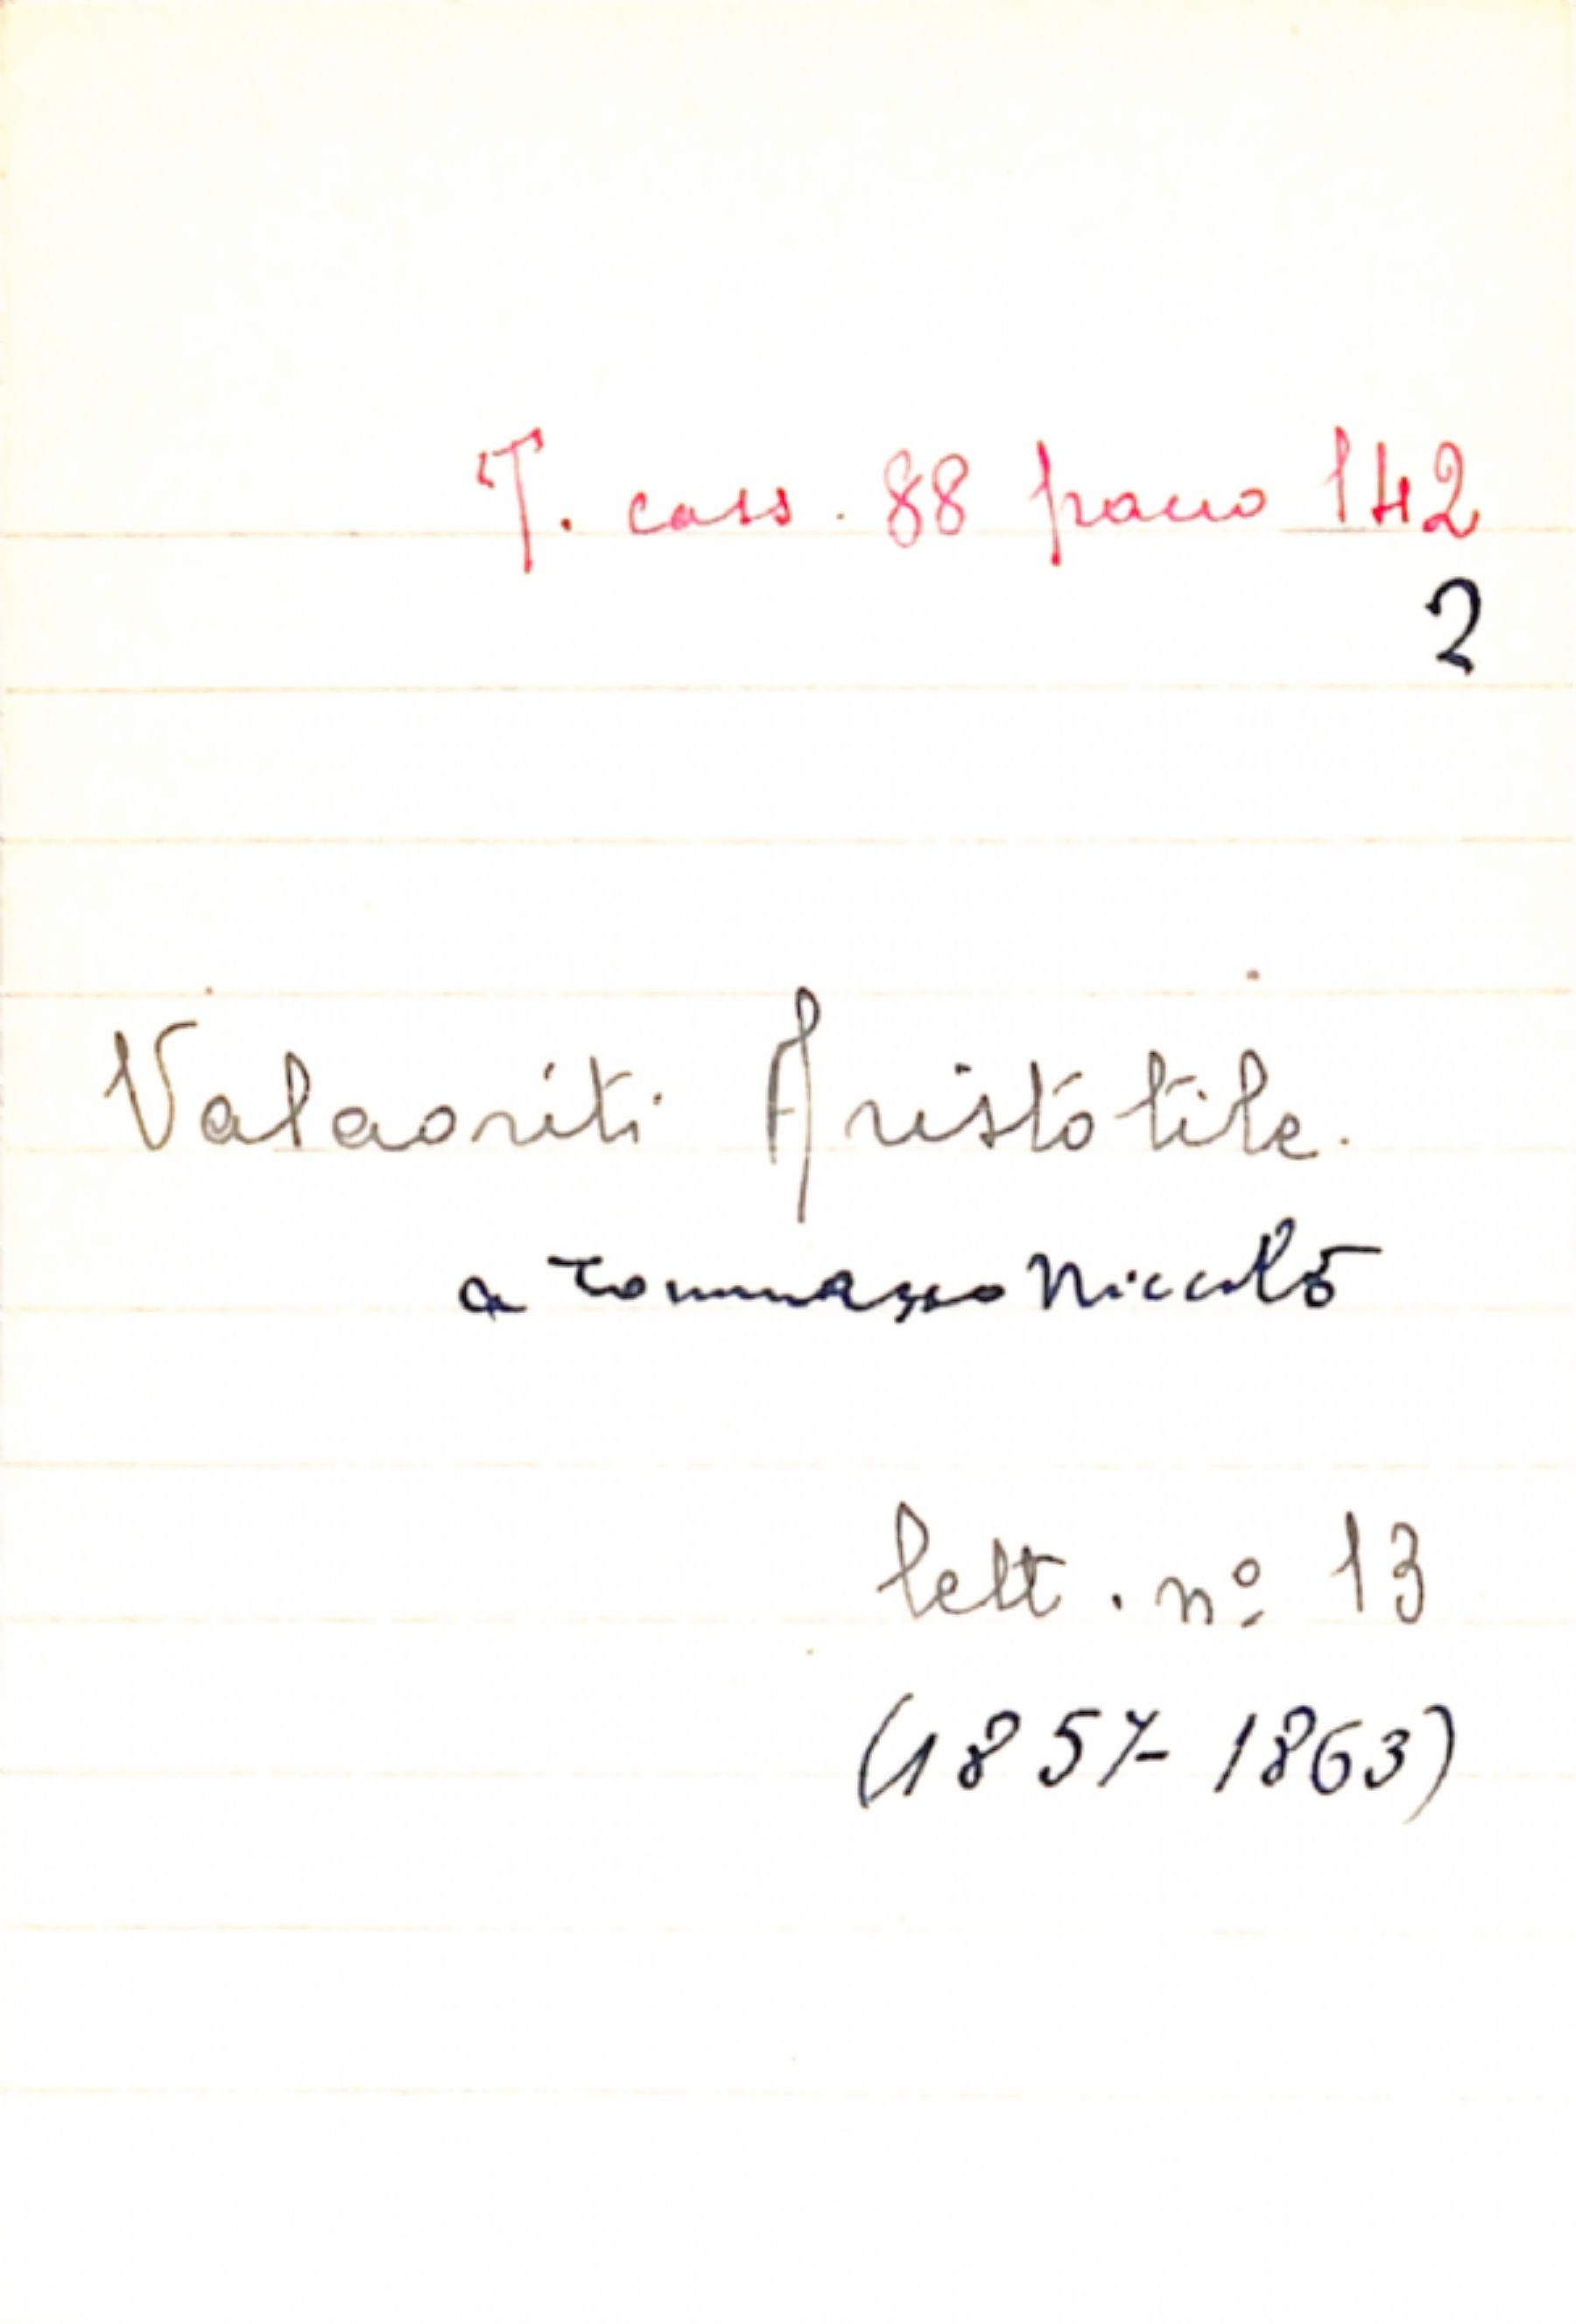 T. cass. 88 pacco 142
2
Valaoriti Aristotile.
a Tommaseo Niccolò
lett. nº 13
(1857-1863)